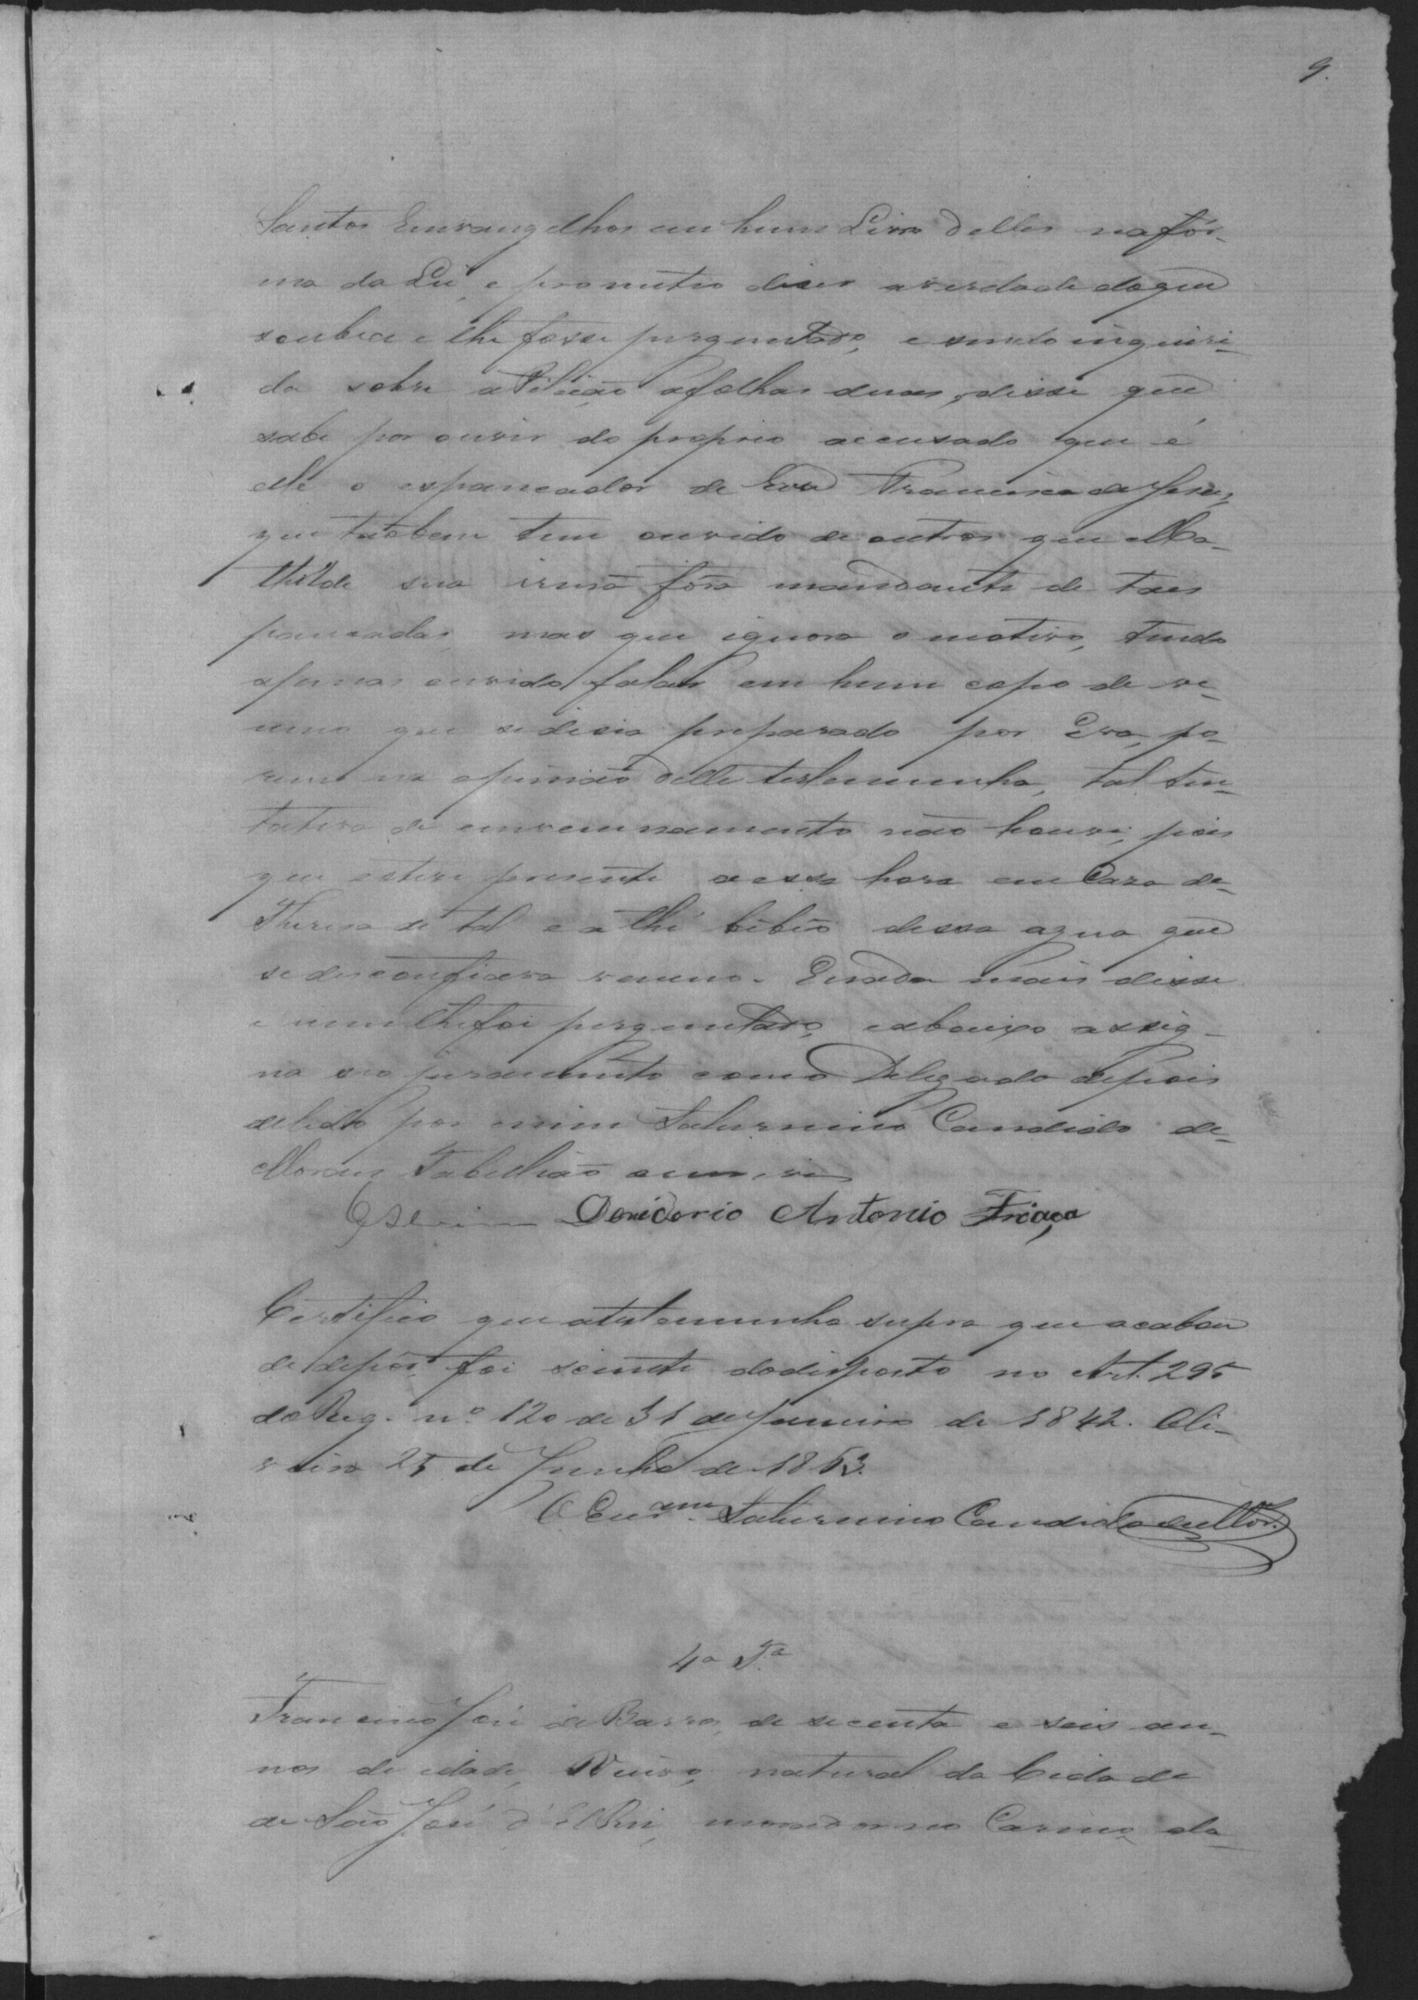 9.
Santos Emvangelhos em hum Livro delles na fór-
ma da Lei, e prometeo diser a verdade do que
soubece e lhe fosse perguntado, e sendo inquiri-
do sobre a Petição a folhas duas, disse que
sabe por ouvir do proprio accusado que é
elle o espancador de Eva Francisca de Jesus,
que tãobem tem ouvido de outros que Ma-
thilde sua irmã fôra mandante de taes
pancadas, mas que ignora o motivo, tendo
apenas ouvido falar em hum copo de ve-
neno que se disia preparado por Eva, po-
rem na opinião delle testemunha, tal ten-
tativa de envenenamento não houve, pois
que esteve presente a essa hora em Casa de
Theresa de tal e athé bibeo dessa agua que
se desconfiava veneno. E nada mais disse
e nem lhe foi perguntado, e abaixo assig-
na seo juramento como Delegado depois
de lido por mim Saturnino Candido de
Moraes Tabellião escrevi
Dezidorio Antonio Friaça
Certifico que a testemunha supra que acabou
de depôr foi sciente do disposto no Art. 295
do Reg. nº 120 de 31 de Janeiro de 1842. Oli-
veira 25 de Junho de 1863.
O Escr.am Saturnino Candido de Mor.
4ª T.ª
Francisco José de Barros, de secenta e seis an-
nos de idade, Viuvo, natural da Cidade
de São José d'El Rei, morador no Carmo, da